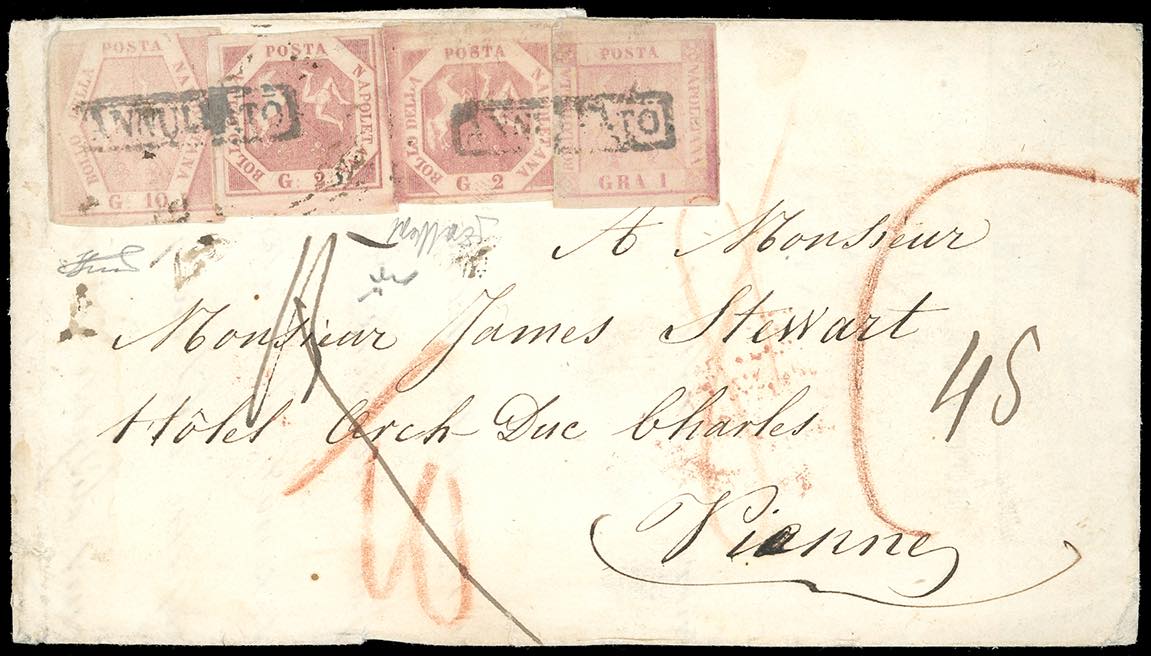 POSTA NAPOLETANA BOLLO DELLA G. 10
POSTA NAPOLETANA BOLLO DELLA G. 2
POSTA NAPOLETANA BOLLO DELLA G. 2
POSTA NAPOLETANA BOLLO DELLA GRA 1
ANNULLATO
ANNULLATO
A Monsieur
Monsieur James Stewart
Hôtel Arch Duc Charles
Vienne
45